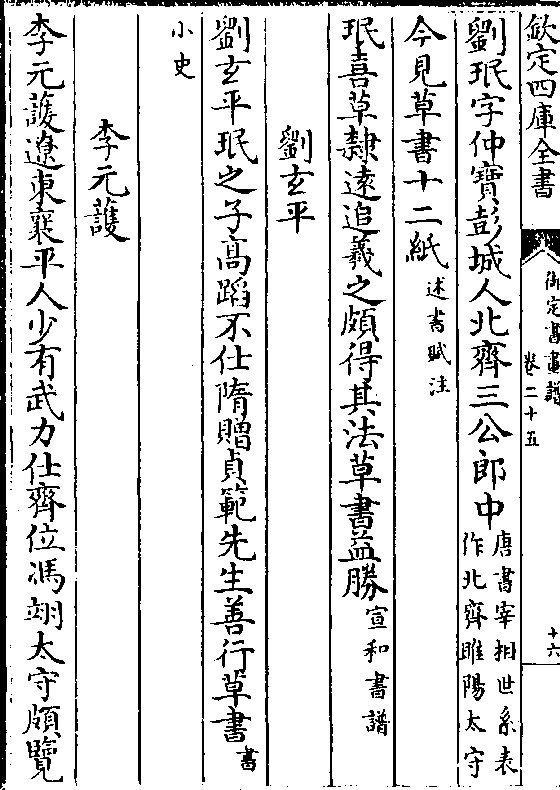 欽定四庫全書
御定書畫譜
卷二十五
十六
劉珉字仲寶彭城人北齊三公郎中唐書宰相世系表
作北齊雎陽太守
今見草書十二紙述書賦注
珉喜草隸遠追羲之頗得其法草書益勝宣和書譜
劉玄平
劉玄平珉之子高蹈不仕隋贈貞範先生善行草書書
小史
李元護
李元護遼東襄平人少有武力仕齊位馮翊太守頗覽